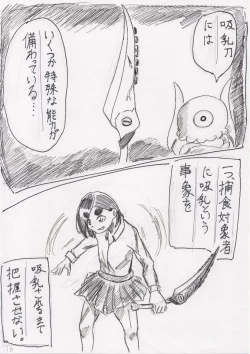 吸乳刀
には
いくつか特殊な能力が
備わっている…
一つ、捕食対象者
に吸乳という
事象を
吸乳されるまで
把握させない。